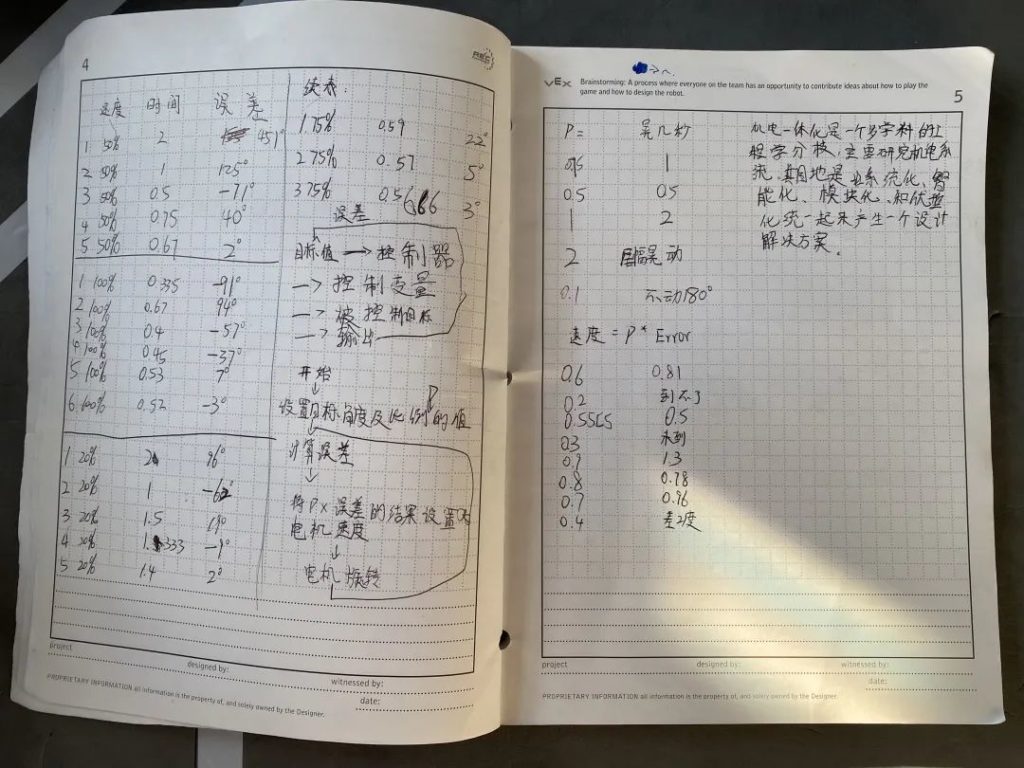 4
速度 时间 误差
1 50% 2 451°
2 50% 1 125°
3 50% 0.5 -71°
4 50% 0.75 40°
5 50% 0.67 2°
1 100% 0.335 -91°
2 100% 0.67 94°
3 100% 0.4 -57°
4 100% 0.45 -37°
5 100% 0.53 7°
6 100% 0.52 -3°
1 20% 2 96°
2 20% 1 -62°
3 20% 1.5 19°
4 20% 1.333 -9°
5 20% 1.4 2°
续表:
1 75% 0.59 22°
2 75% 0.57 5°
3 75% 0.566 3°
误差
目标值 → 控制器
→ 控制变量
→ 被控制目标
→ 输出
开始
↓
设置目标角度及比例P的值
↓
计算误差
↓
将P×误差的结果设置为
电机速度
↓
电机旋转
project
designed by:
witnessed by:
date:
PROPRIETARY INFORMATION all information is the property of, and solely owned by the Designer.
VEX
Brainstorming: A process where everyone on the team has an opportunity to contribute ideas about how to play the
game and how to design the robot.
5
P= 晃几秒
1
0.5 0.5
1 2
2 晃动
0.1 不动180°
速度 = P * Error
0.6 0.81
0.2 到不了
0.5565 0.5
0.3 未到
0.9 1.3
0.8 0.78
0.7 0.96
0.4 差2度
机电一体化是一个多学科的工
程学分枝,主要研究机电系
统,其目地是系统化、智
能化、模块化、和优
化统一起来产生一个设计
解决方案.
project
designed by:
witnessed by:
date:
PROPRIETARY INFORMATION all information is the property of, and solely owned by the Designer.